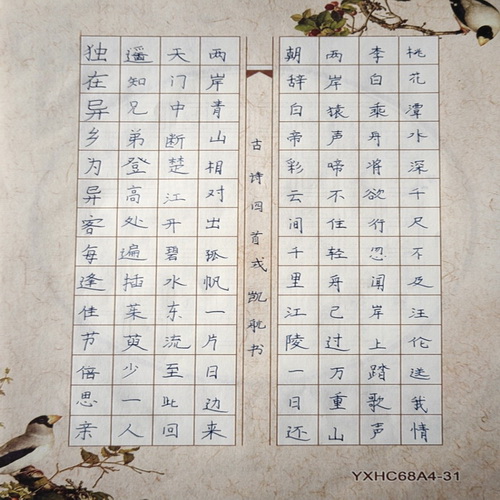 独在异乡为异客每逢佳节倍思亲
遥知兄弟登高处遍插茱萸少一人
天门中断楚江开碧水东流至此回
两岸青山相对出孤帆一片日边来
古诗四首 凯 书
朝辞白帝彩云间千里江陵一日还
两岸猿声啼不住轻舟已过万重山
李白乘舟将欲行忽闻岸上踏歌声
桃花潭水深千尺不及汪伦送我情
YXHC68A4-31